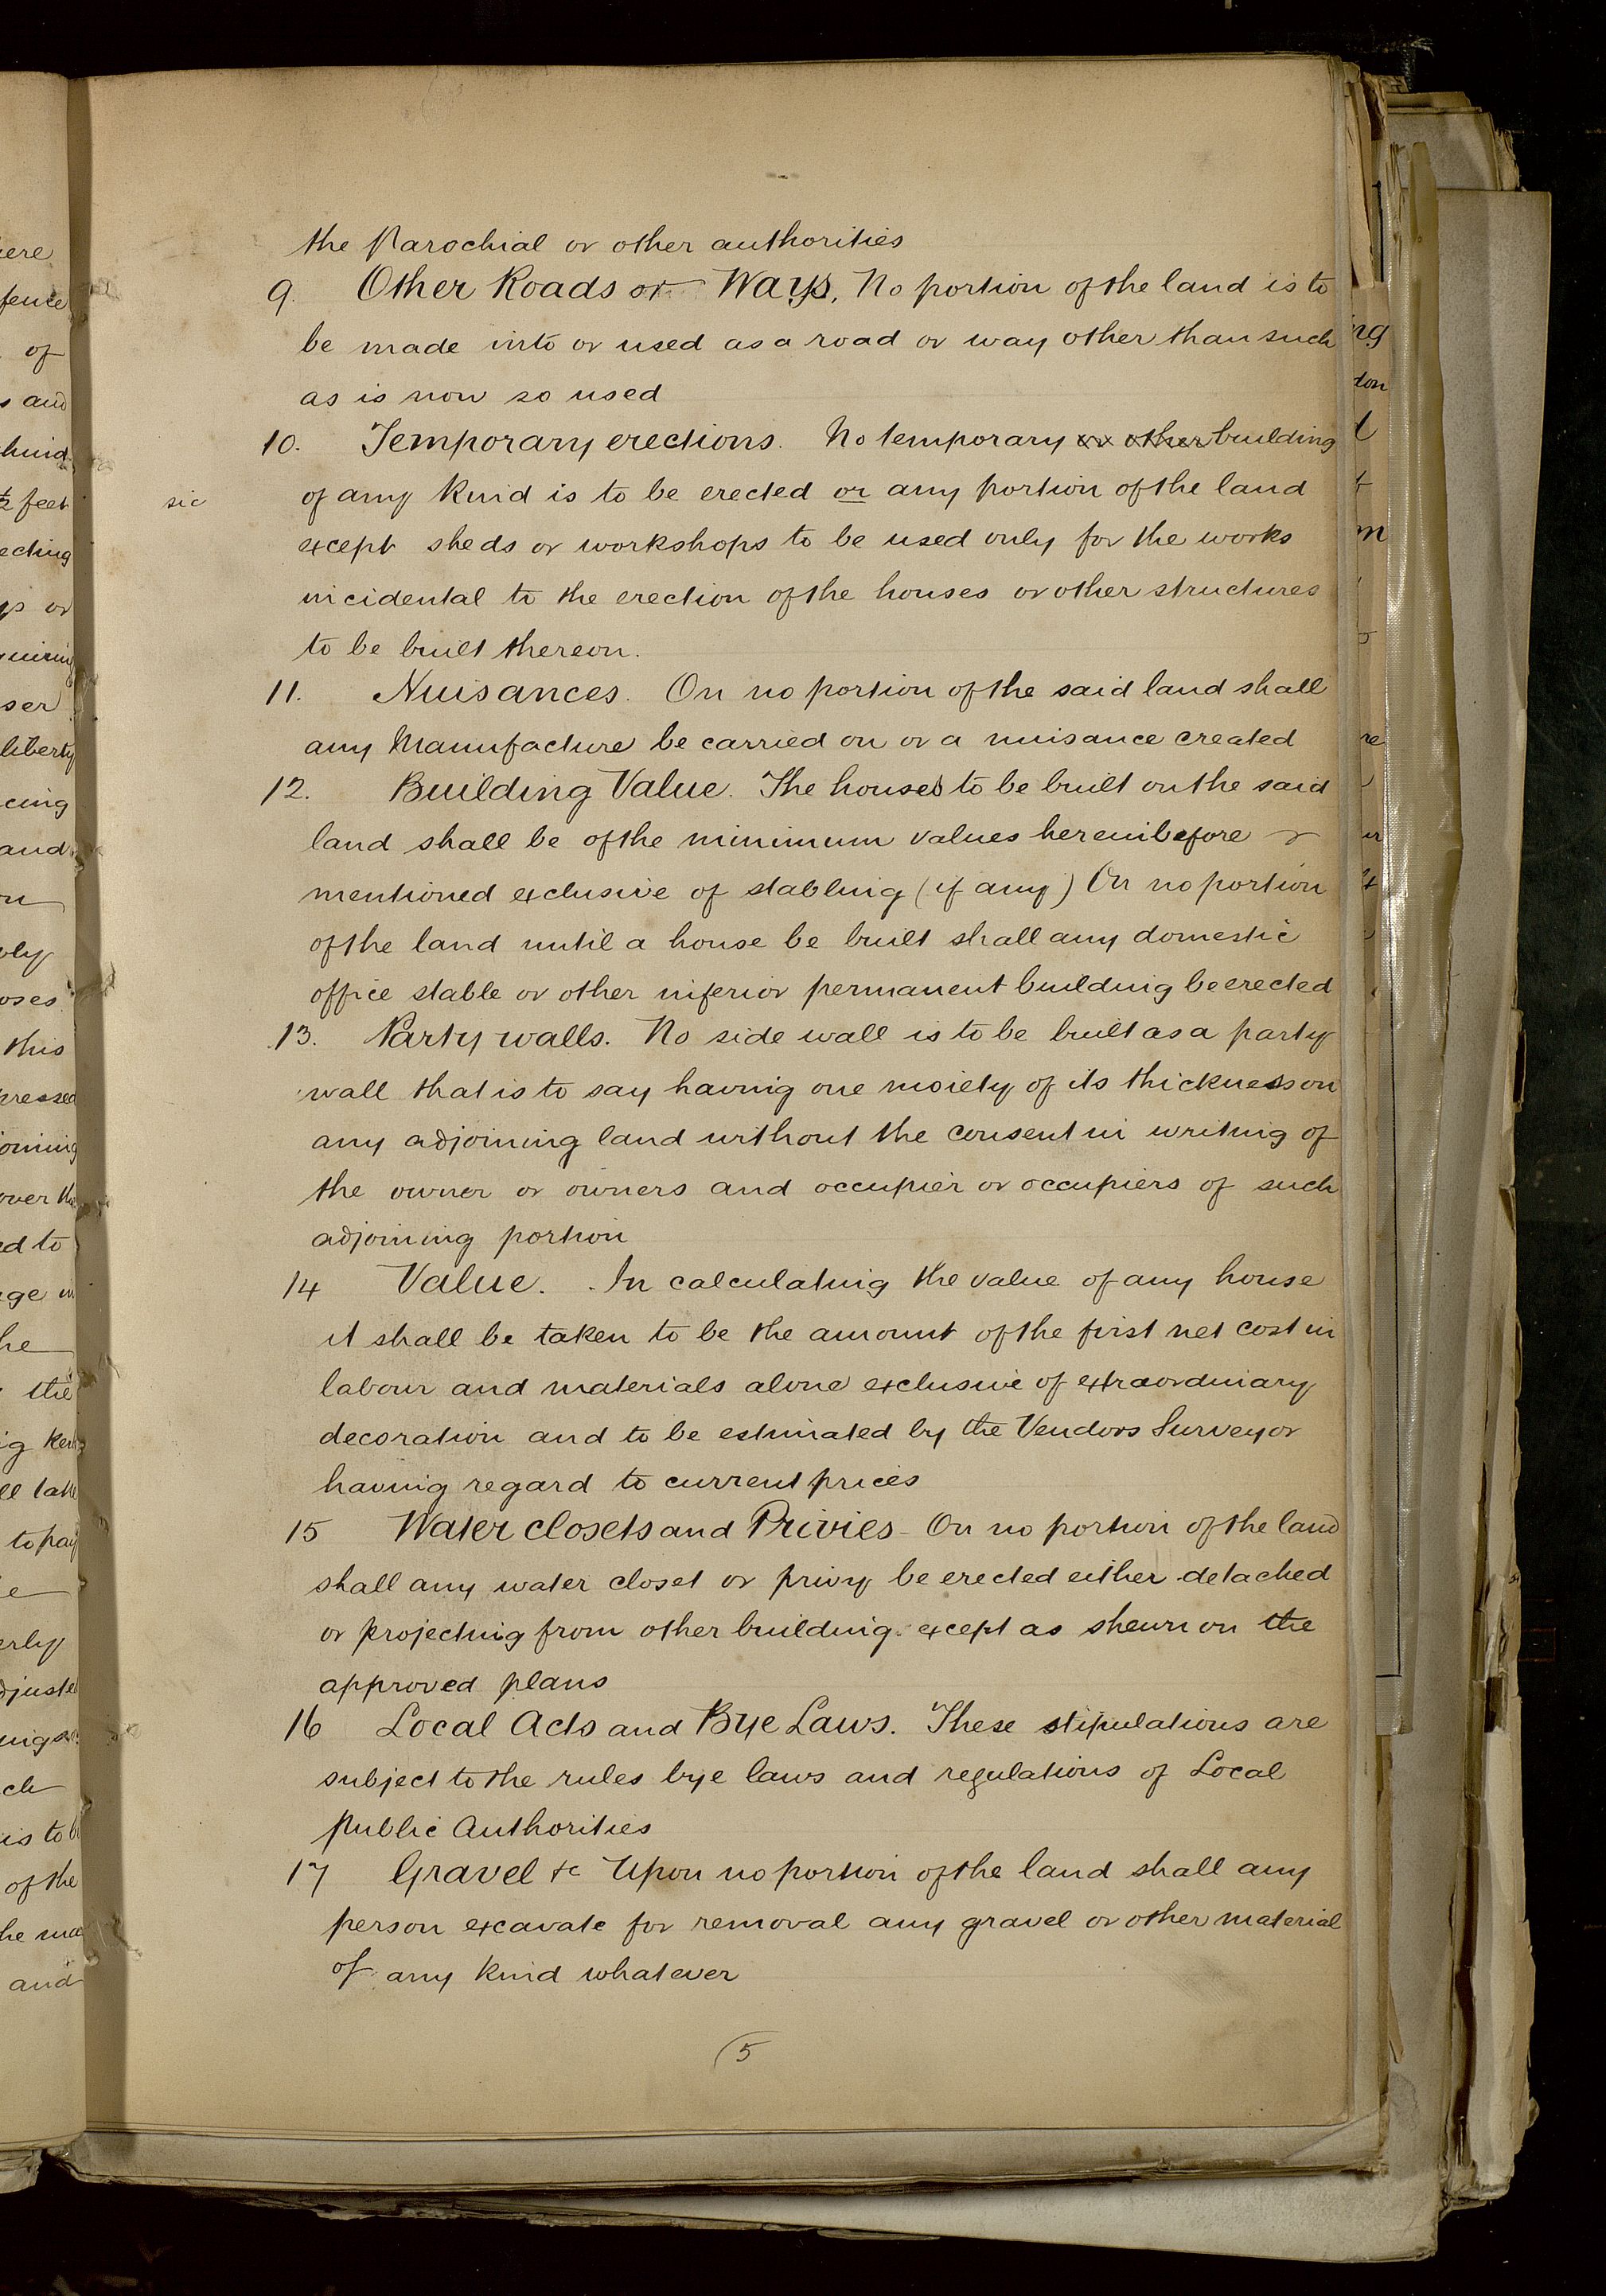 the Parochial or other authorities
9. Other Roads or Ways. No portion of the land is to
be made into or used as a road or way other than such
as is now so used
10. Temporary erections. No temporary or other building
sic of any kind is to be erected or any portion of the land
except sheds or workshops to be used only for the works
incidental to the erection of the houses or other structures
to be built thereon.
11. Nuisances. On no portion of the said land shall
any Manufacture be carried on or a nuisance created
12. Building Value. The houses to be built on the said
land shall be of the minimum values hereinbefore
mentioned exclusive of stabling (if any) On no portion
of the land until a house be built shall any domestic
office stable or other inferior permanent building be erected
13. Party walls. No side wall is to be built as a party
wall that is to say having one moiety of its thickness on
any adjoining land without the consent in writing of
the owner or owners and occupier or occupiers of such
adjoining portion
14 Value. In calculating the value of any house
it shall be taken to be the amount of the first net cost in
labour and materials alone exclusive of extraordinary
decoration and to be estimated by the Vendors Surveyor
having regard to current prices
15 Water closets and Privies - On no portion of the land
shall any water closet or privy be erected either detached
or projecting from other building except as shewn on the
approved plans
16 Local Acts and Bye Laws. These stipulations are
subject to the rules bye laws and regulations of Local
Public Authorities
17 Gravel &c Upon no portion of the land shall any
person excavate for removal any gravel or other material
of any kind whatever
(5